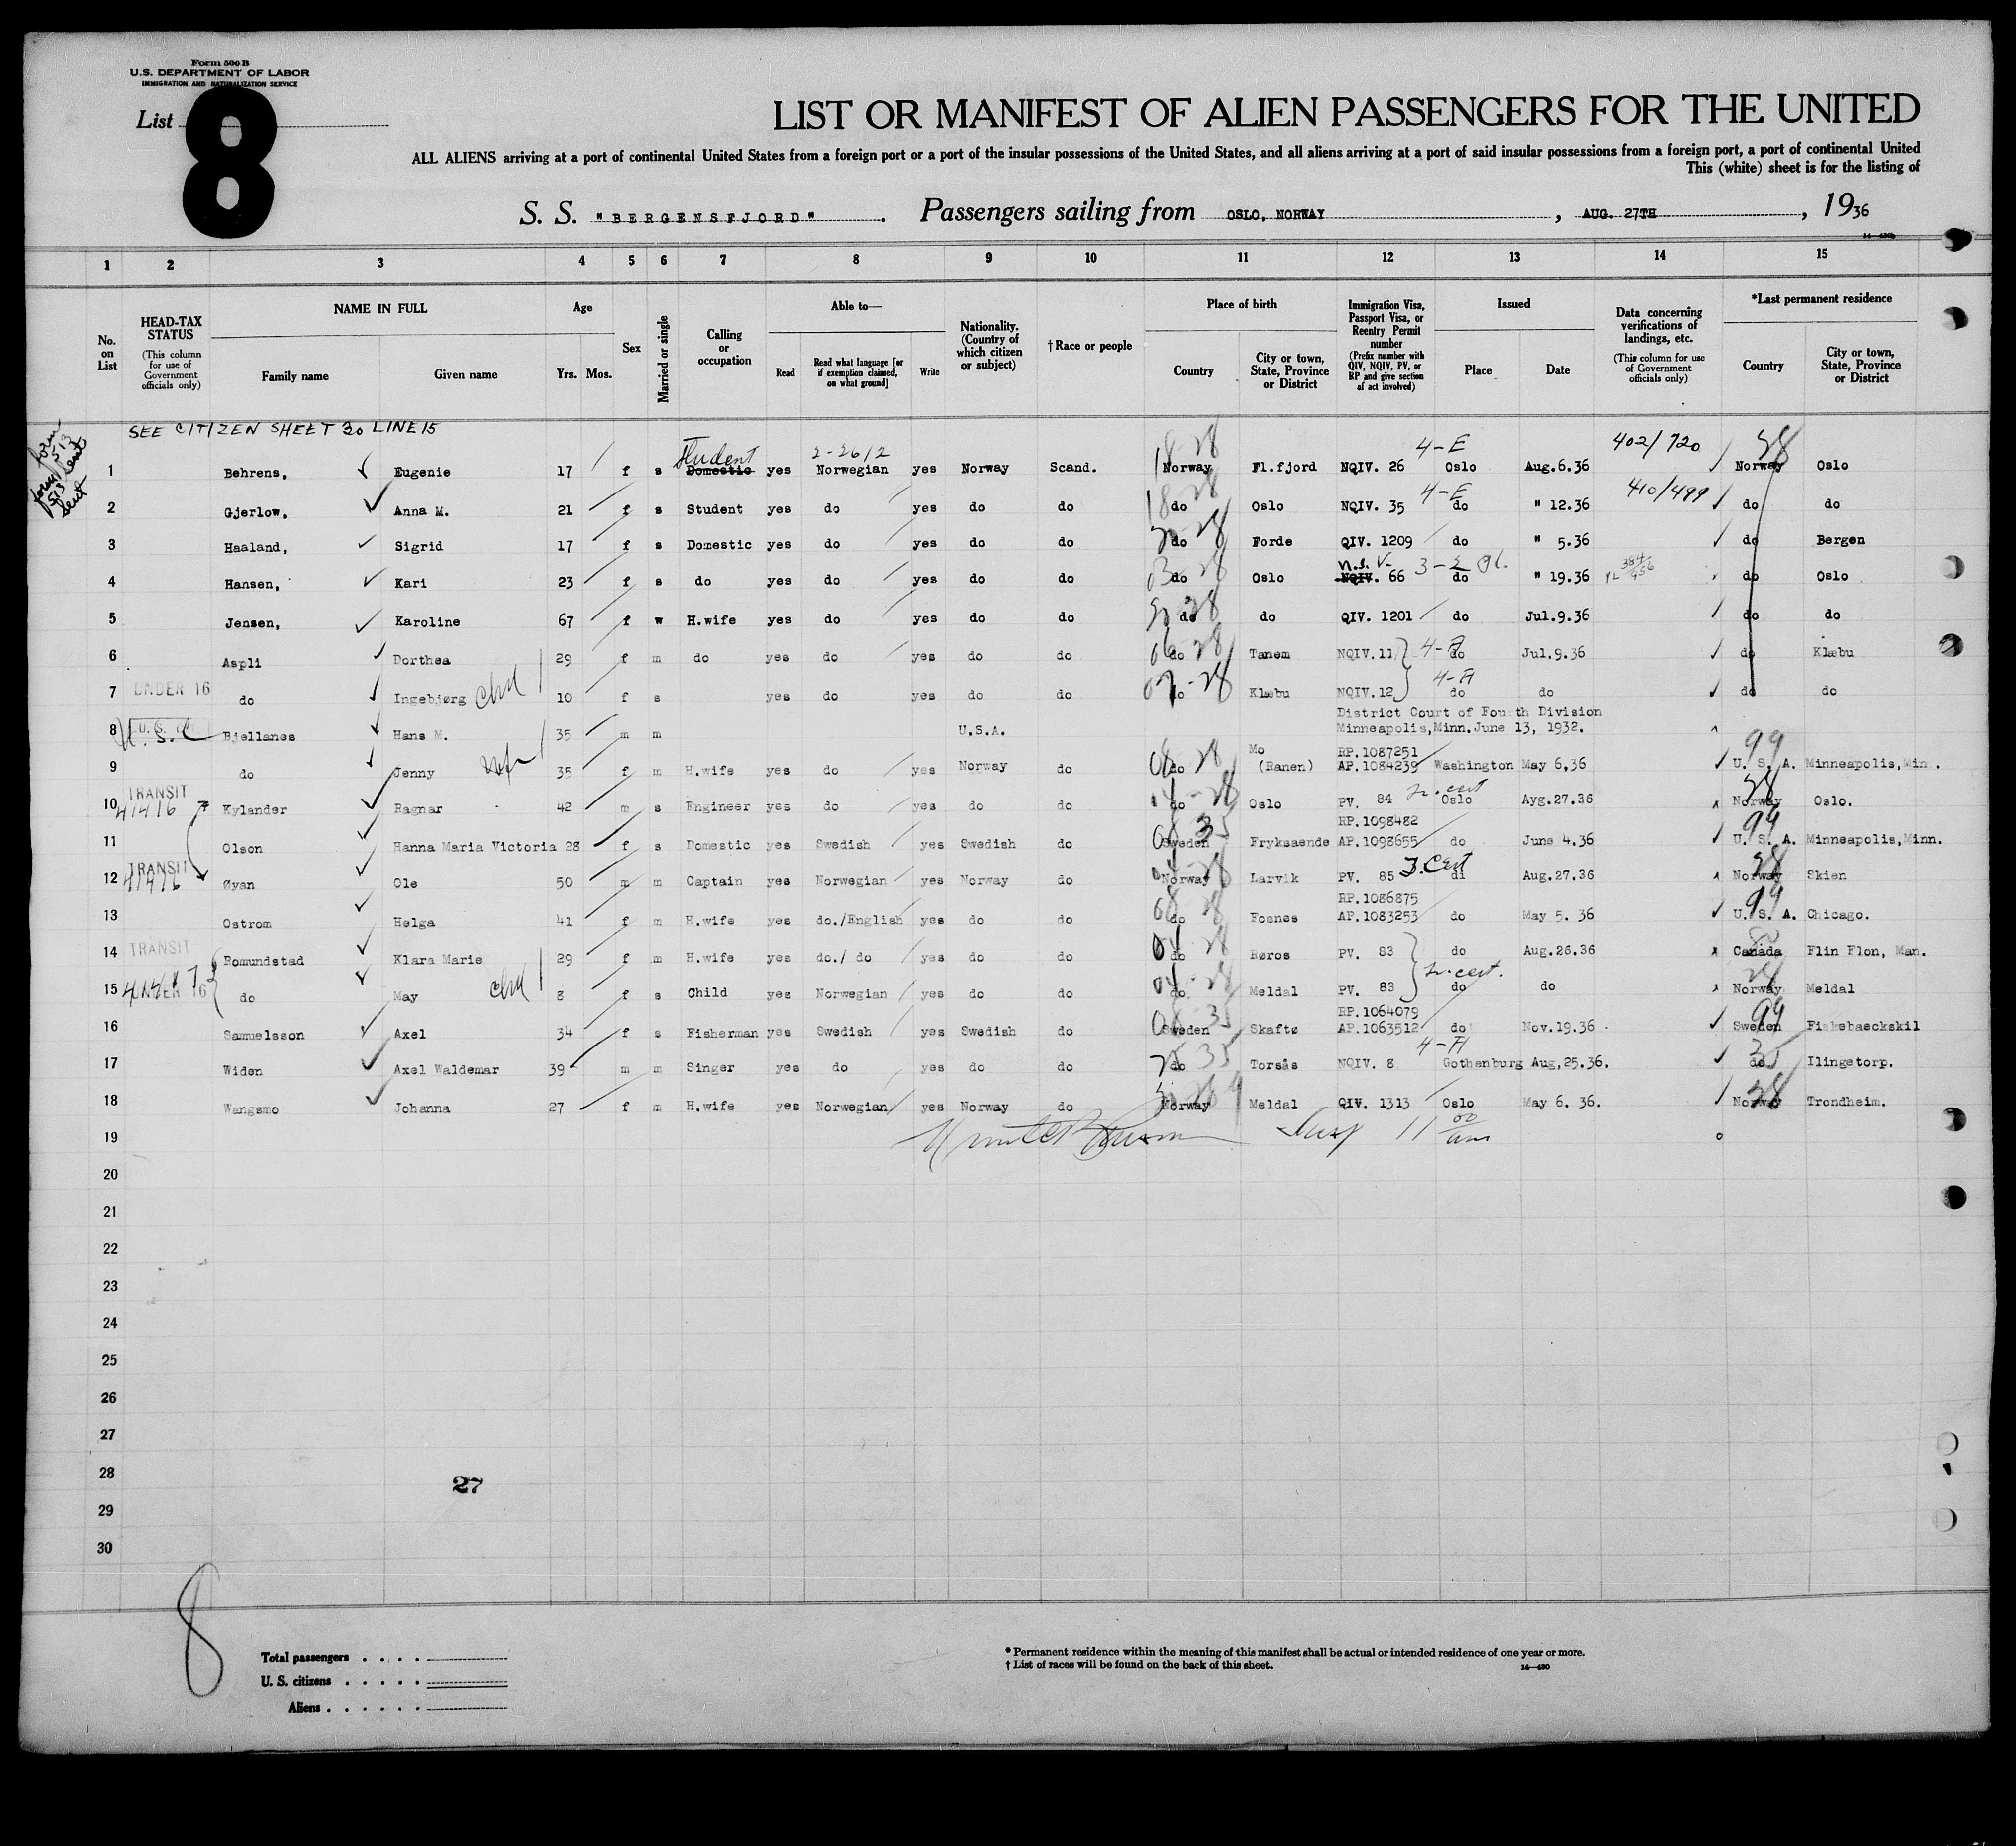 Form 500 B
U.S. DEPARTMENT OF LABOR
IMMIGRATION AND NATURALIZATION SERVICE
List 8
LIST OR MANIFEST OF ALIEN PASSENGERS FOR THE UNITED
ALL ALIENS arriving at a port of continental United States from a foreign port or a port of the insular possessions of the United States, and all aliens arriving at a port of said insular possessions from a foreign port, a port of continental United
This (white) sheet is for the listing of
S. S. "BERGENSFJORD". Passengers sailing from OSLO, NORWAY, AUG. 27TH, 1936
1 2 3 4 5 6 7 8 9 10 11 12 13 14 15
No. on List
HEAD-TAX STATUS (This column for use of Government officials only)
NAME IN FULL Family name Given name
Age Yrs. Mos.
Sex
Married or single
Calling or occupation
Able to— Read Read what language [or if exemption claimed, on what ground] Write
Nationality. (Country of which citizen or subject)
†Race or people
Place of birth Country City or town, State, Province or District
Immigration Visa, Passport Visa, or Reentry Permit number (Prefix number with QIV, NQIV, PV, or RP and give section of act involved)
Issued Place Date
Data concerning verifications of landings, etc. (This column for use of Government officials only)
*Last permanent residence Country City or town, State, Province or District
SEE CITIZEN SHEET 30 LINE 15
form 513 sent
form 513 sent
Student 2-2612 4-E 402/720
1 Behrens, Eugenie 17 f s Domestic yes Norwegian yes Norway Scand. Norway Fl.fjord NQIV. 26 Oslo Aug.6.36 Norway Oslo
4-E 410/499
2 Gjerlow, Anna M. 21 f s Student yes do yes do do do Oslo NQIV. 35 do " 12.36 do do
3 Haaland, Sigrid 17 f s Domestic yes do yes do do do Forde QIV. 1209 do " 5.36 do Bergen
n.s. V-
4 Hansen, Kari 23 f s do yes do yes do do do Oslo NQIV. 66 do " 19.36 do Oslo
5 Jensen, Karoline 67 f w H.wife yes do yes do do do do QIV. 1201 do Jul.9.36 do do
6 Aspli Dorthea 29 f m do yes do yes do do do Tanem NQIV.11 do Jul.9.36 do Klæbu
UNDER 16
7 do Ingebjørg chd 10 f s yes do yes do do do Klæbu NQIV.12 do do do do
District Court of Fourth Division
U. S. C
8 Bjellanes Hans M. 35 m m U.S.A. Minneapolis,Minn.June 13, 1932.
Mo RP.1087251
9 do Jenny 35 f m H.wife yes do yes Norway do do (Ranen) AP.1084239 Washington May 6.36 U. S. A. Minneapolis,Min.
TRANSIT
41416
10 Kylander Ragnar 42 m s Engineer yes do yes do do do Oslo PV. 84 Oslo Ayg.27.36 Norway Oslo.
RP.1098482
11 Olson Hanna Maria Victoria 28 f s Domestic yes Swedish yes Swedish do Sweden Fryksaende AP.1098655 do June 4.36 U. S. A. Minneapolis,Minn.
TRANSIT
41416
12 Øyan Ole 50 m m Captain yes Norwegian yes Norway do Norway Larvik PV. 85 di Aug.27.36 Norway Skien
RP.1086875
13 Ostrom Helga 41 f m H.wife yes do./English yes do do do Fosnes AP.1083253 do May 5. 36 U. S. A. Chicago.
TRANSIT
14 Romundstad Klara Marie 29 f m H.wife yes do./ do yes do do do Røros PV. 83 do Aug.26.36 Canada Flin Flon, Man.
15 do May chd 8 f s Child yes Norwegian yes do do do Meldal PV. 83 do do Norway Meldal
RP.1064079
16 Samuelsson Axel 34 f s Fisherman yes Swedish yes Swedish do Sweden Skaftø AP.1063512 do Nov.19.36 Sweden Fiskebaeckskil
17 Widen Axel Waldemar 39 m m Singer yes do yes do do do Torsås NQIV. 8 Gothenburg Aug,25.36. do Ilingetorp.
18 Wangsmo Johanna 27 f m H.wife yes Norwegian yes Norway do Norway Meldal QIV. 1313 Oslo May 6. 36. Norway Trondheim.
19
20
21
22
23
24
25
26
27
28
27
29
30
8
Total passengers
U. S. citizens
Aliens
* Permanent residence within the meaning of this manifest shall be actual or intended residence of one year or more.
† List of races will be found on the back of this sheet.
14—430